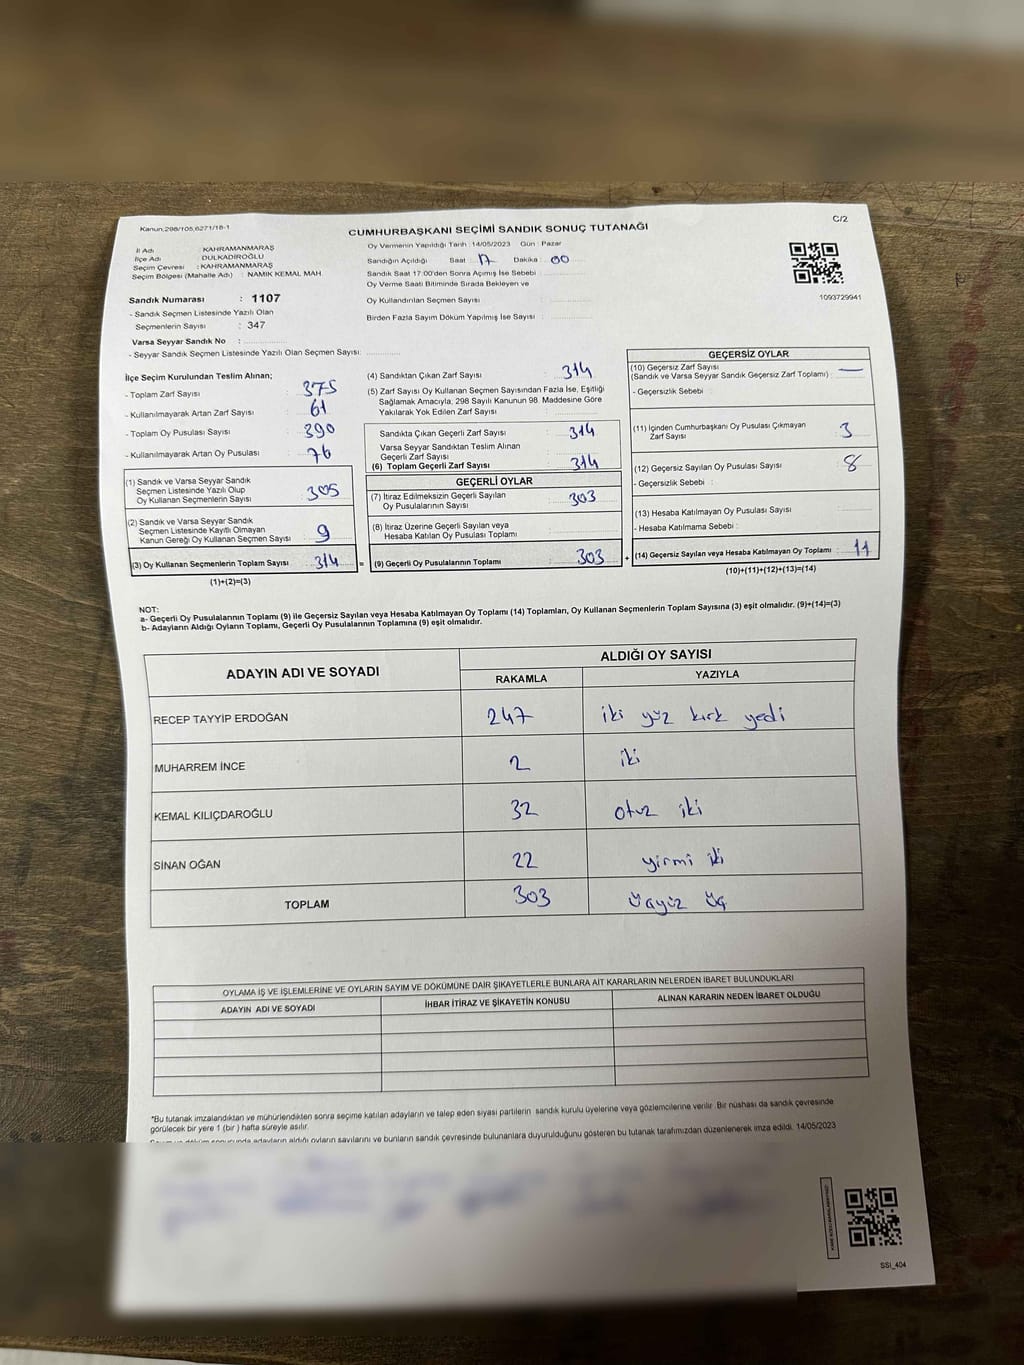 Kanun,298/105,6271/16-1
CUMHURBAŞKANI SEÇİMİ SANDIK SONUÇ TUTANAĞI
C/2
İl Adı : KAHRAMANMARAŞ
İlçe Adı : DULKADİROĞLU
Seçim Çevresi : KAHRAMANMARAŞ
Seçim Bölgesi (Mahalle Adı) : NAMIK KEMAL MAH.
Oy Vermenin Yapıldığı Tarih : 14/05/2023 Gün : Pazar
Sandığın Açıldığı Saat 17 Dakika : 00
Sandık Saat 17:00'den Sonra Açımış İse Sebebi :
Oy Verme Saati Bitiminde Sırada Bekleyen ve
Oy Kullandırılan Seçmen Sayısı :
Birden Fazla Sayım Döküm Yapılmış İse Sayısı :
1093729941
Sandık Numarası : 1107
- Sandık Seçmen Listesinde Yazılı Olan
Seçmenlerin Sayısı : 347
Varsa Seyyar Sandık No :
- Seyyar Sandık Seçmen Listesinde Yazılı Olan Seçmen Sayısı:
İlçe Seçim Kurulundan Teslim Alınan;
- Toplam Zarf Sayısı : 375
- Kullanılmayarak Artan Zarf Sayısı : 61
- Toplam Oy Pusulası Sayısı : 390
- Kullanılmayarak Artan Oy Pusulası : 76
(1) Sandık ve Varsa Seyyar Sandık
Seçmen Listesinde Yazılı Olup
Oy Kullanan Seçmenlerin Sayısı : 305
(2) Sandık ve Varsa Seyyar Sandık
Seçmen Listesinde Kayıtlı Olmayan
Kanun Gereği Oy Kullanan Seçmen Sayısı : 9
(3) Oy Kullanan Seçmenlerin Toplam Sayısı : 314
(1)+(2)=(3)
(4) Sandıktan Çıkan Zarf Sayısı : 314
(5) Zarf Sayısı Oy Kullanan Seçmen Sayısından Fazla İse, Eşitliği
Sağlamak Amacıyla, 298 Sayılı Kanunun 98. Maddesine Göre
Yakılarak Yok Edilen Zarf Sayısı :
Sandıkta Çıkan Geçerli Zarf Sayısı : 314
Varsa Seyyar Sandıktan Teslim Alınan
Geçerli Zarf Sayısı :
(6) Toplam Geçerli Zarf Sayısı : 314
GEÇERLİ OYLAR
(7) İtiraz Edilmeksizin Geçerli Sayılan
Oy Pusulalarının Sayısı : 303
(8) İtiraz Üzerine Geçerli Sayılan veya
Hesaba Katılan Oy Pusulası Toplamı :
= (9) Geçerli Oy Pusulalarının Toplamı : 303
GEÇERSİZ OYLAR
(10) Geçersiz Zarf Sayısı
(Sandık ve Varsa Seyyar Sandık Geçersiz Zarf Toplamı) : —
- Geçersizlik Sebebi :
(11) İçinden Cumhurbaşkanı Oy Pusulası Çıkmayan
Zarf Sayısı : 3
(12) Geçersiz Sayılan Oy Pusulası Sayısı : 8
- Geçersizlik Sebebi :
(13) Hesaba Katılmayan Oy Pusulası Sayısı :
- Hesaba Katılmama Sebebi :
+ (14) Geçersiz Sayılan veya Hesaba Katılmayan Oy Toplamı : 11
(10)+(11)+(12)+(13)=(14)
NOT:
a- Geçerli Oy Pusulalarının Toplamı (9) ile Geçersiz Sayılan veya Hesaba Katılmayan Oy Toplamı (14) Toplamları, Oy Kullanan Seçmenlerin Toplam Sayısına (3) eşit olmalıdır. (9)+(14)=(3)
b- Adayların Aldığı Oyların Toplamı, Geçerli Oy Pusulalarının Toplamına (9) eşit olmalıdır.
ADAYIN ADI VE SOYADI
ALDIĞI OY SAYISI
RAKAMLA YAZIYLA
RECEP TAYYİP ERDOĞAN 247 iki yüz kırk yedi
MUHARREM İNCE 2 iki
KEMAL KILIÇDAROĞLU 32 otuz iki
SİNAN OĞAN 22 yirmi iki
TOPLAM 303 üçyüz üç
OYLAMA İŞ VE İŞLEMLERİNE VE OYLARIN SAYIM VE DÖKÜMÜNE DAİR ŞİKAYETLERLE BUNLARA AİT KARARLARIN NELERDEN İBARET BULUNDUKLARI
ADAYIN ADI VE SOYADI İHBAR İTİRAZ VE ŞİKAYETİN KONUSU ALINAN KARARIN NEDEN İBARET OLDUĞU
*Bu tutanak imzalandıktan ve mühürlendikten sonra seçime katılan adayların ve talep eden siyasi partilerin sandık kurulu üyelerine veya gözlemcilerine verilir. Bir nüshası da sandık çevresinde
görülecek bir yere 1 (bir) hafta süreyle asılır.
Sayım ve döküm sonucunda adayların aldığı oyların sayılarını ve bunların sandık çevresinde bulunanlara duyurulduğunu gösteren bu tutanak tarafımızdan düzenlenerek imza edildi. 14/05/2023
SSİ_404